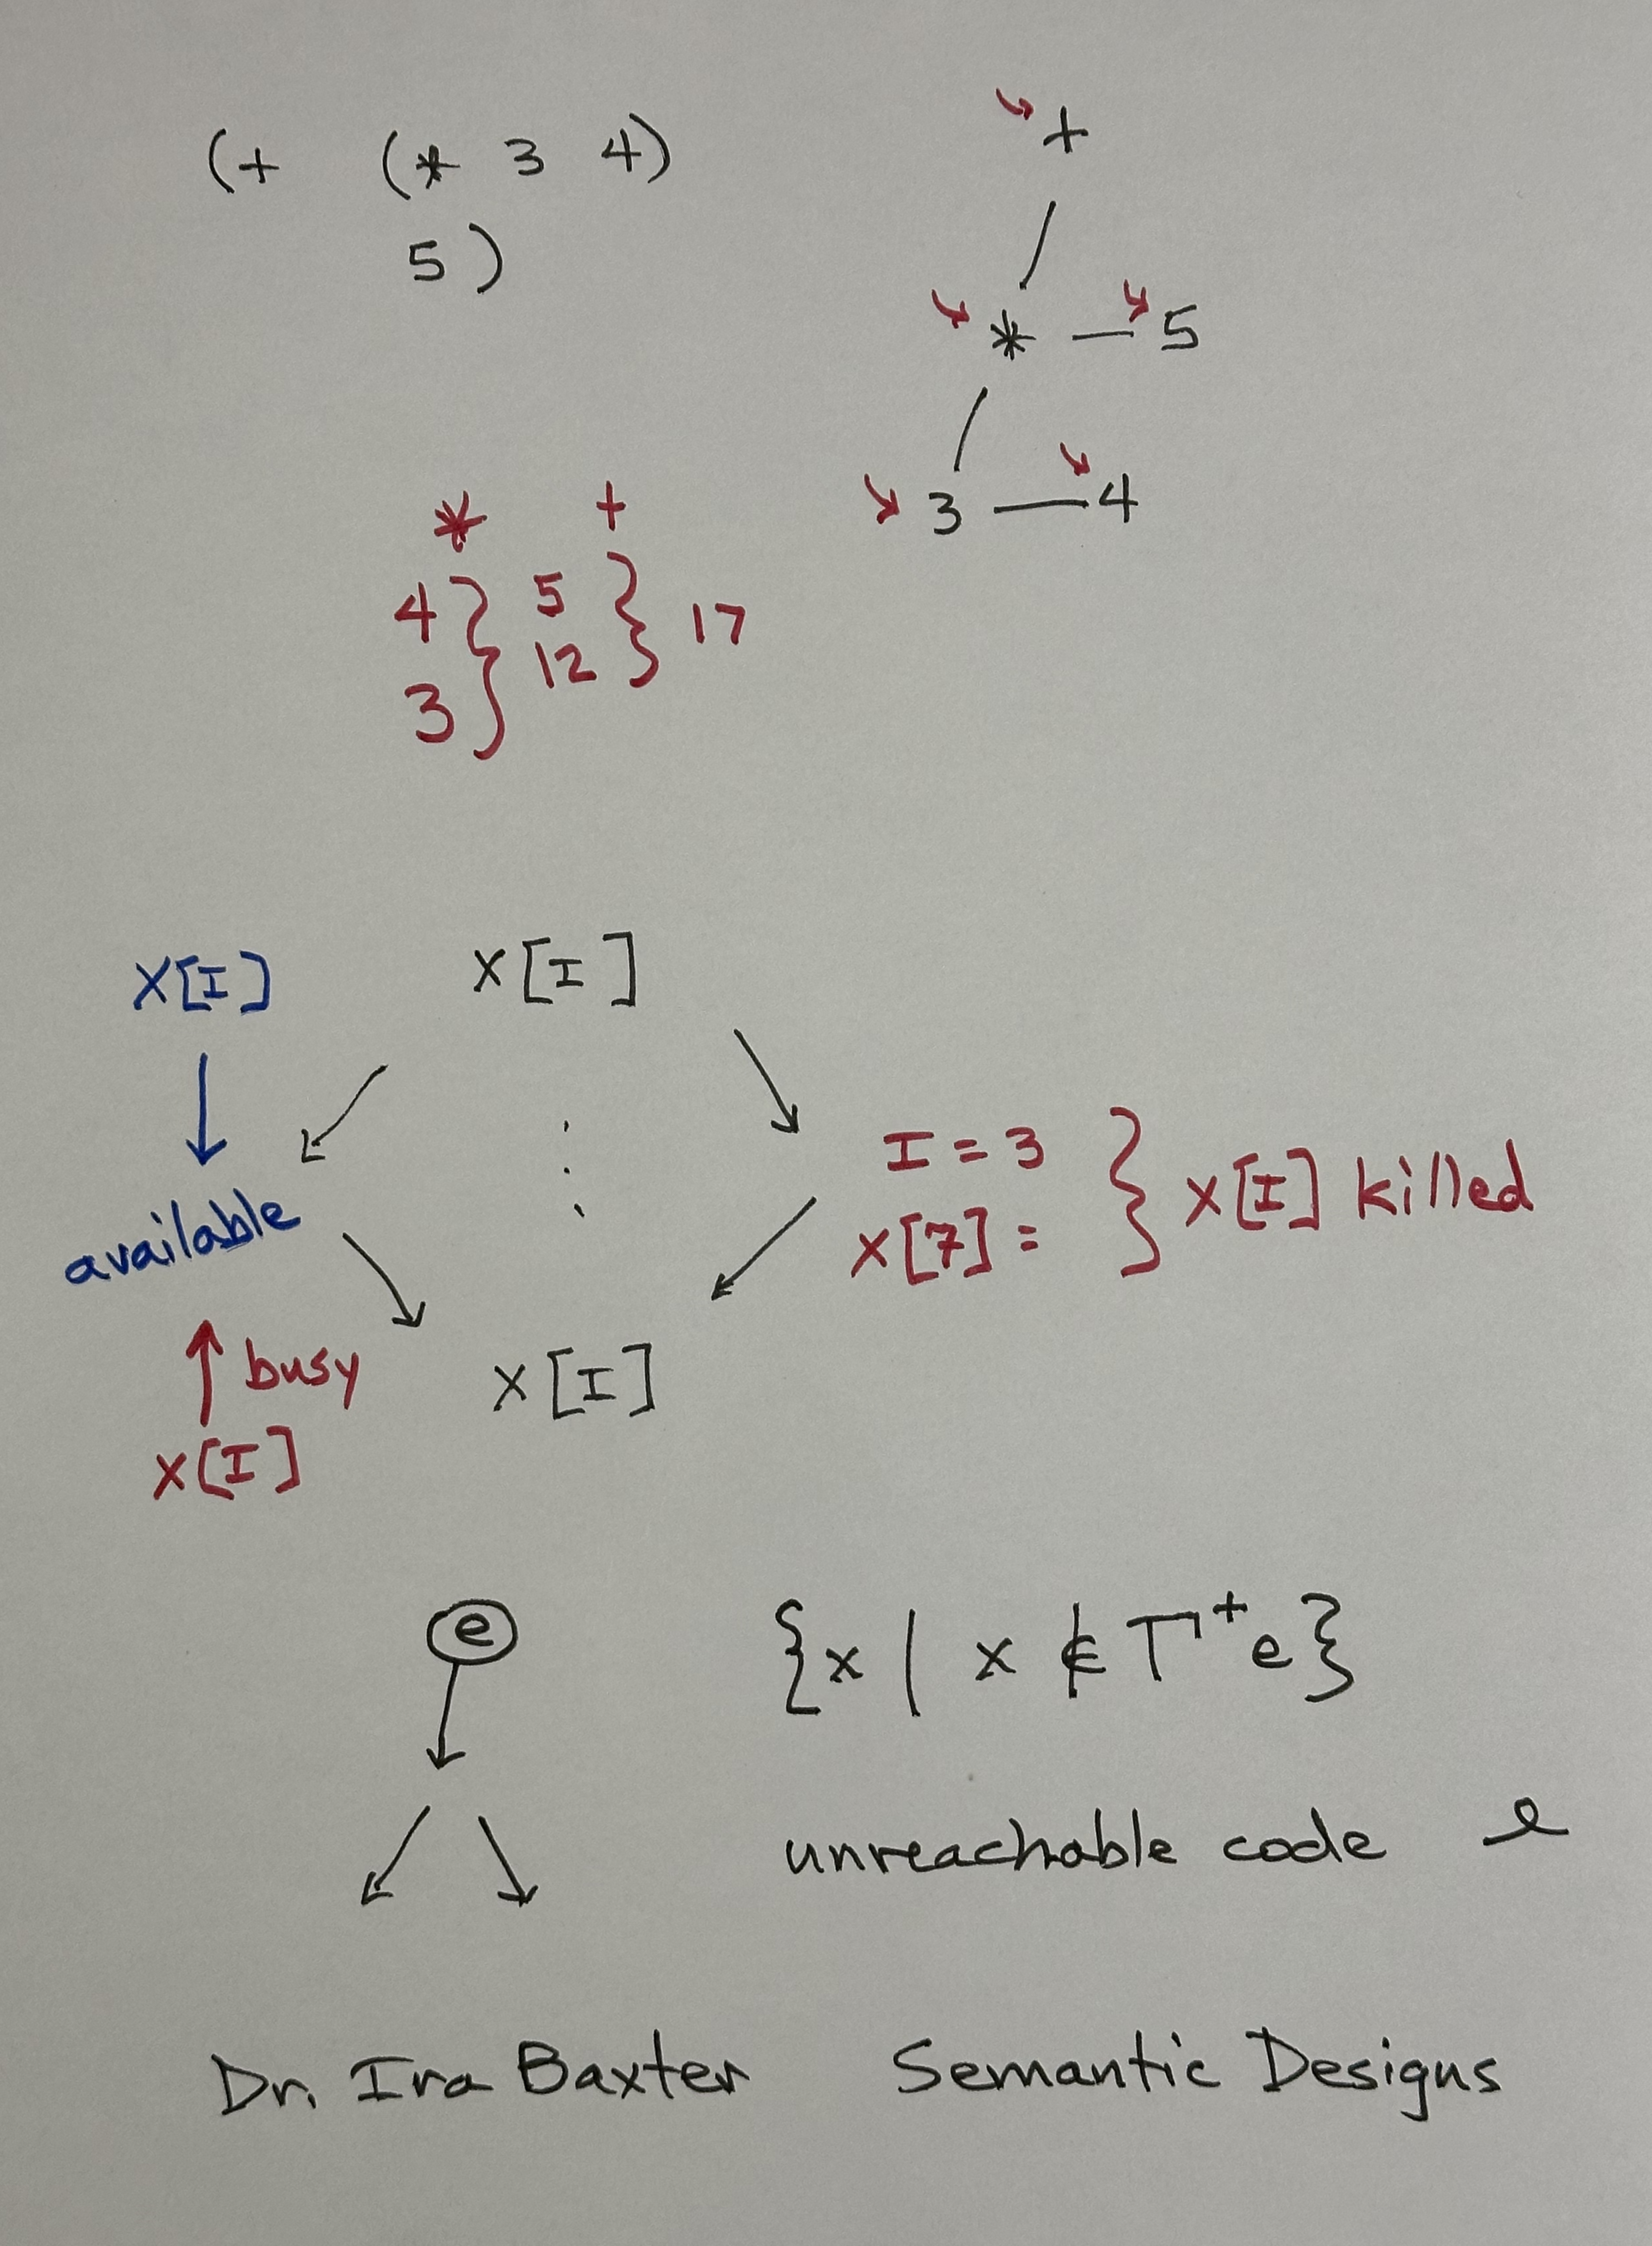 (+ (* 3 4)
5)
+
* 5
3 4
* +
4 } 5 } 17
3 12
X[I] X[I]
I = 3 } X[I] killed
X[7] =
available
busy
X[I]
X[I]
e
{x | x ∉ T⁺e}
unreachable code e
Dr. Ira Baxter Semantic Designs